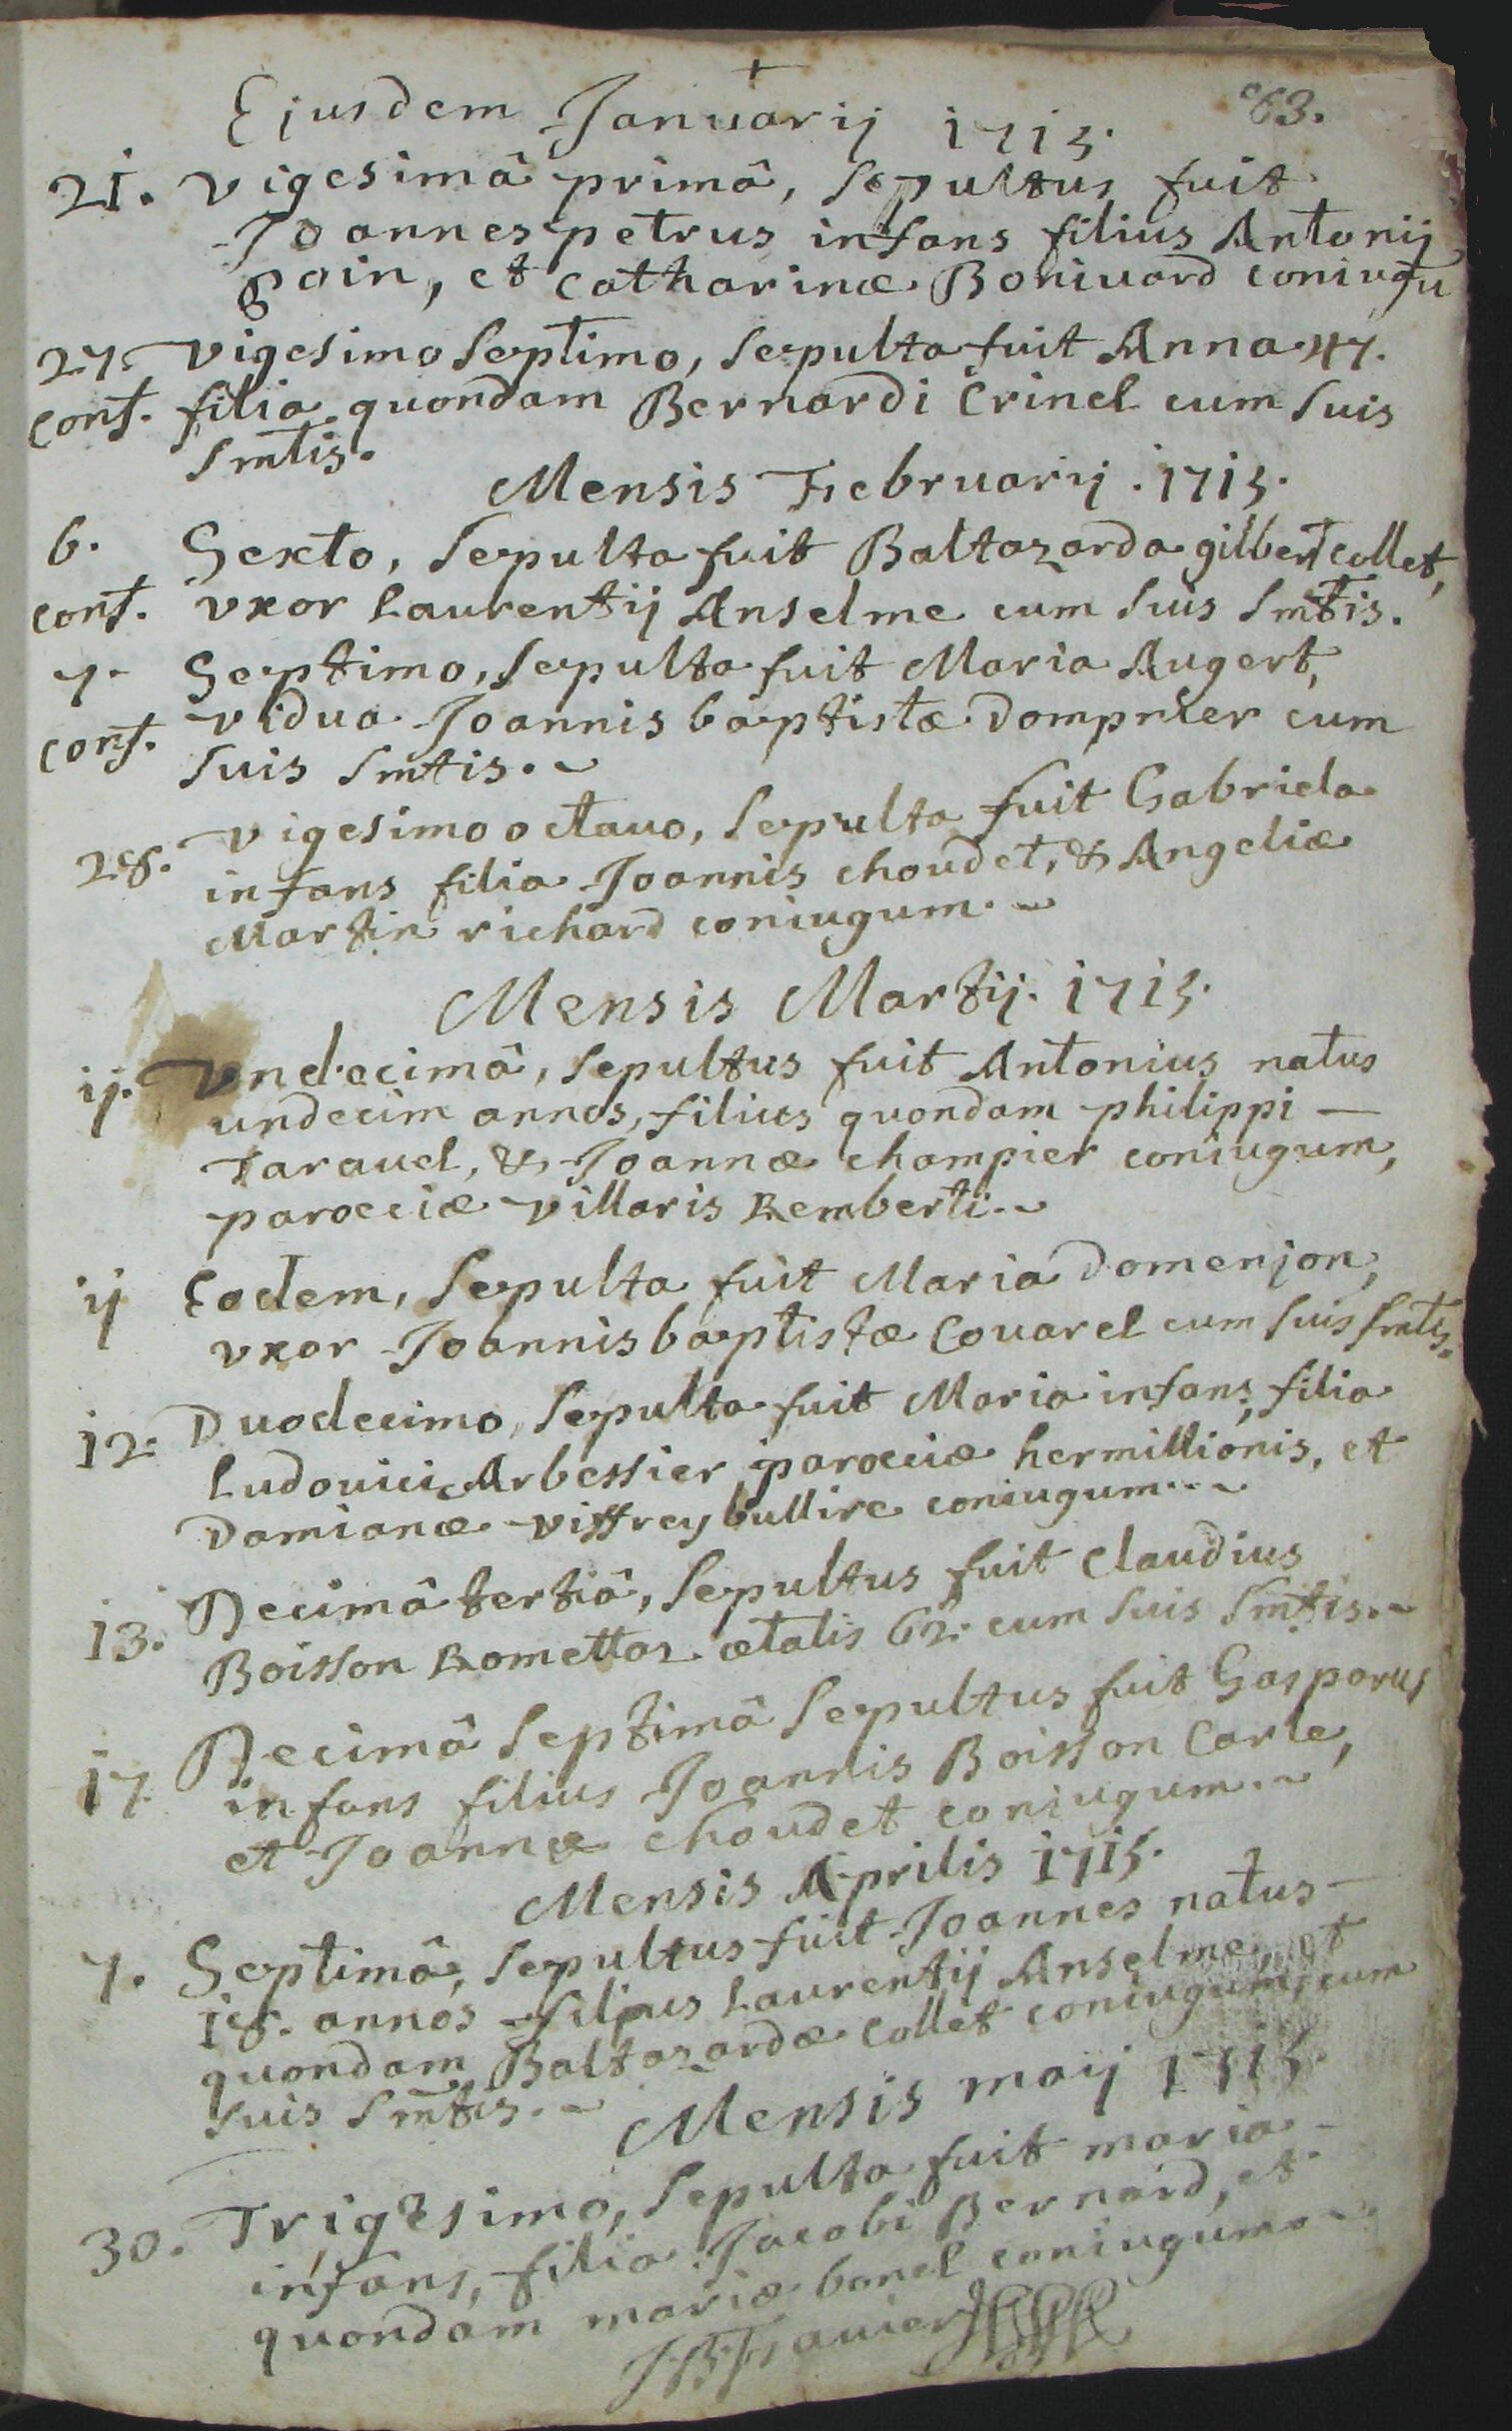 63.
Ejusdem Januarij 1715.
21. Vigesimâ primâ, sepultus fuit
Joannes petrus infans filius Antonij
gain, et Catharinæ Boniuard coniugu
27. Vigesimo septimo, sepulta fuit Anna 47.
conf. filia quondam Bernardi Crinel cum suis
smtis.
Mensis Februarij. 1715.
6. Sexto, sepulta fuit Baltazarda gilbert collet,
conf. vxor Laurentij Anselme cum suis smtis.
7. Septimo, sepulta fuit Maria Augert,
conf. vidua Joannis baptistæ Domprier cum
suis smtis.
28. Vigesimo octauo, sepulta fuit Gabriela
infans filia Joannis choudet, & Angeliæ
Martin richard coniugum.
Mensis Martij. 1715.
ij. Vndecimâ, sepultus fuit Antonius natus
undecim annos, filius quondam philippi
Tarauel, & Joannæ champier coniugum,
parocciæ Villaris Remberti.
ij Eodem, sepulta fuit Maria Domenjon,
vxor Joannis baptistæ Couarel cum suis smtis.
12. Duodecimo, sepulta fuit Maria infans, filia
Ludouici Arbessier parocciæ hermillionis, et
Damianæ Viffrey bullire coniugum.
13. Decimâ tertiâ, sepultus fuit Claudius
Boisson Romettaz ætatis 62. cum suis smtis.
17. Decimâ septimâ sepultus fuit Gasparus
infans filius Joannis Boisson Carle,
et Joannæ choudet coniugum.
Mensis Aprilis 1715.
7. Septimâ, sepultus fuit Joannes natus
18. annos filius Laurentij Anselme, et
quondam Baltazardæ Collet coniugum, cum
suis smtis.
Mensis maij 1715.
30. Trigesimo, sepulta fuit maria
infans, filia Jacobi Bernard, et
quondam mariæ bonel coniugum